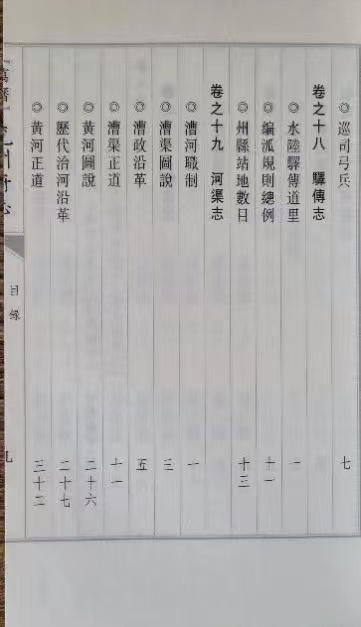 ◎巡司弓兵 七
卷之十八 驛傳志
◎水陸驛傳道里 一
◎編派規則總例 十一
◎州縣站地數目 十三
卷之十九 河渠志
◎漕河職制 一
◎漕渠圖說 三
◎漕政沿革 五
◎漕渠正道 十一
◎黃河圖說 二十六
◎歷代治河沿革 二十七
◎黃河正道 三十二
目錄
九